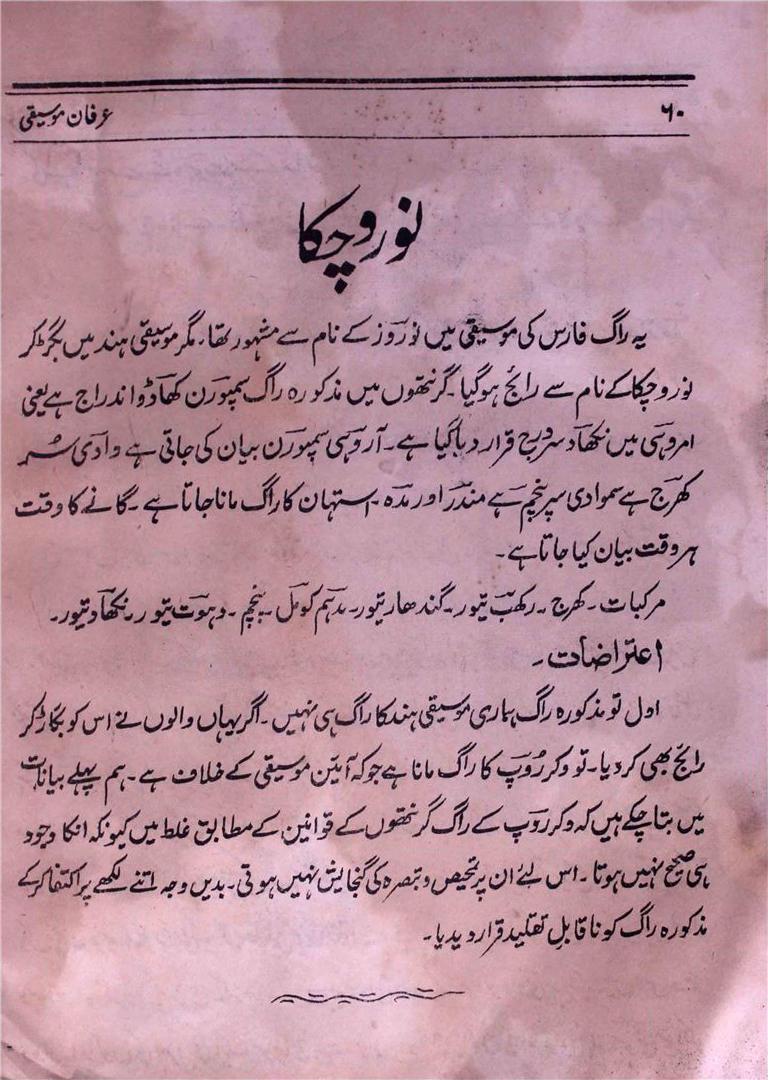 ۶۰
عرفان موسیقی
نوروچکا
یہ راگ فارس کی موسیقی میں نوروز کے نام سے مشہور تھا۔ مگر موسیقی ہند میں بگڑ کر
نوروچکا کے نام سے رائج ہوگیا۔ گرنتھوں میں مذکورہ راگ سمپورن کھاڈو اندراج ہے یعنی
امروہسی میں نکھاد سر ورج قرار دیا گیا ہے۔ آروہسی سمپورن بیان کی جاتی ہے وادی سُر
کھرج ہے سموادی سر پنچم ہے مندر اور مدہ۔ استہان کا راگ مانا جاتا ہے۔ گانے کا وقت
ہر وقت بیان کیا جاتا ہے۔
مرکبات۔ کھرج۔ رکھب تیور۔ گندھار تیور۔ مدہم کومل۔ پنچم۔ دہوت تیور۔ نکھاد تیور۔
اعتراضات۔
اول تو مذکورہ راگ ہماری موسیقی ہند کا راگ ہی نہیں۔ اگر یہاں والوں نے اس کو بگاڑ کر
رائج بھی کر دیا۔ تو وکر رُوپ کا راگ مانا ہے جو کہ آئین موسیقی کے خلاف ہے۔ ہم پہلے بیانات
میں بتا چکے ہیں کہ وکر روپ کے راگ گرنتھوں کے قوانین کے مطابق غلط ہیں کیونکہ انکا وجود
ہی صحیح نہیں ہوتا۔ اس لئے ان پر تمحیص و تبصرہ کی گنجایش نہیں ہوتی۔ بدیں وجہ اتنے لکھے پر اکتفا کرکے
مذکورہ راگ کو ناقابلِ تقلید قرار دیدیا۔